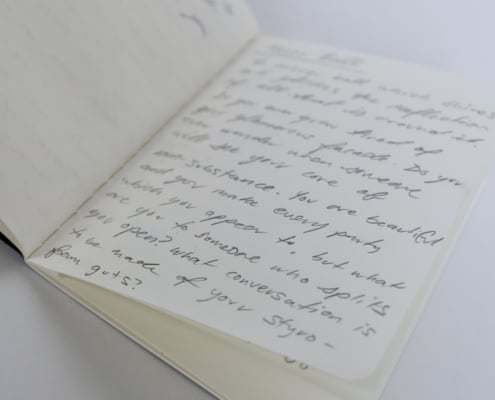 wall which shines
and glosses the reflection
of all that is around it.
you ever grow tired of
your glamorous facade. Do you
ever wonder when someone
will see your core of
non-substance. You are beautiful
and you make every party
which you appear to, but what
are you to someone who splits
you open? What conversation is
to be made of your styro-
foam guts?